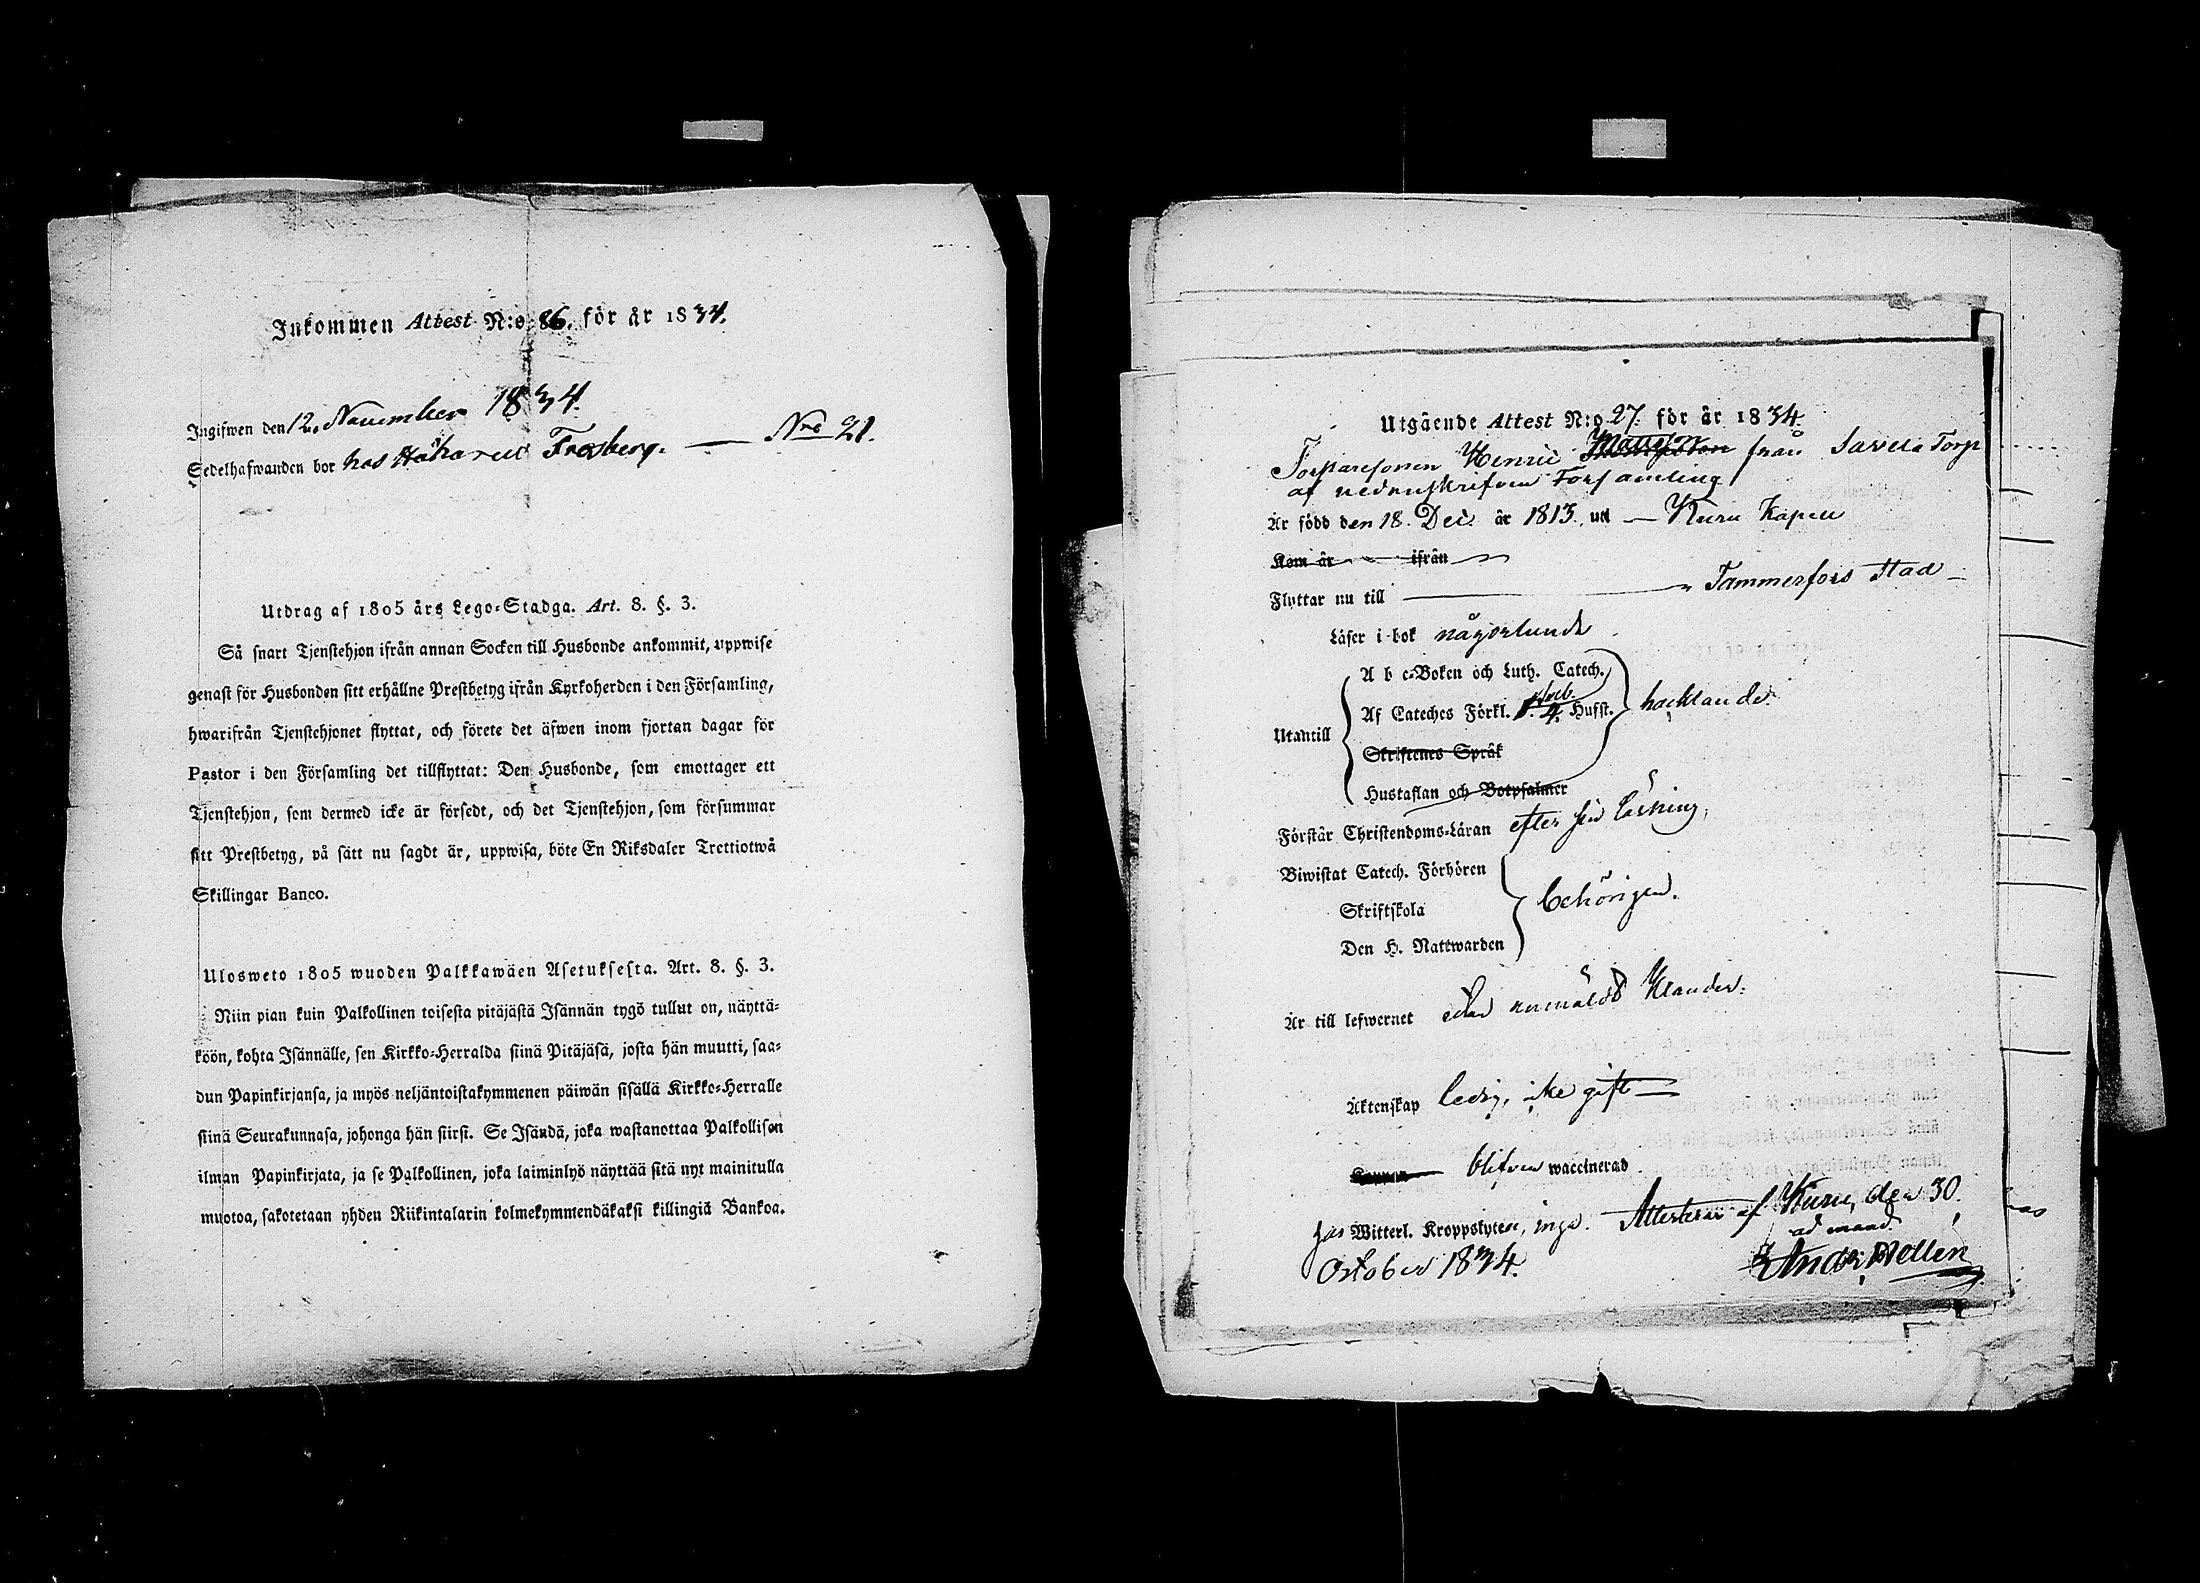 Inkommen Attest N:o 86. för år 1834.
Ingifwen den 12. November 1834.
Sedelhafwanden bor hos Åkaren Forsberg. — Nro 21.
Utdrag af 1805 års Lego-Stadga. Art. 8. §. 3.
Så snart Tjenstehjon ifrån annan Socken till Husbonde ankommit, uppwise
genast för Husbonden sitt erhållne Prestbetyg ifrån Kyrkoherden i den Församling,
hwarifrån Tjenstehjonet flyttat, och förete det äfwen inom fjortan dagar för
Pastor i den Församling det tillflyttat: Den Husbonde, som emottager ett
Tjenstehjon, som dermed icke är försedt, och det Tjenstehjon, som försummar
sitt Prestbetyg, på sätt nu sagdt är, uppwisa, böte En Riksdaler Trettiotwå
Skillingar Banco.
Ulosweto 1805 wuoden Palkkawäen Asetuksesta. Art. 8. §. 3.
Niin pian kuin Palkollinen toisesta pitäjästä Isännän tygö tullut on, näyttä-
köön, kohta Isännälle, sen Kirkko-Herralda siinä Pitäjäsä, josta hän muutti, saa-
dun Papinkirjansa, ja myös neljäntoistakymmenen päiwän sisällä Kirkko-Herralle
siinä Seurakunnasa, johonga hän siirsi. Se Isändä, joka wastanottaa Palkollisen
ilman Papinkirjata, ja se Palkollinen, joka laiminlyö näyttää sitä nyt mainitulla
muotoa, sakotetaan yhden Riikintalarin kolmekymmendäkaksi killingiä Bankoa.
Utgående Attest N:o 27. för år 1834.
Torparesonen Henric från Savela Torp
af nedanskrifven Församling
Är född den 18. Dec. år 1813. uti — Kuru Kapell
Kom år ifrån
Flyttar nu till — Tammerfors Stad —
Läser i bok någorlunda
A b c-Boken och Luth. Catech.
Af Cateches Förkl. 4. Hufst. hacklande.
Utantill
Skriftenes Språk
Hustaflan och Botpsalmer
Förstår Christendoms-Läran efter sin läsning,
Biwistat Catech. Förhören
Skriftskola behörigen.
Den H. Nattwarden
Är till lefwernet utan anmäldt klander.
Äktenskap ledig, icke gift
Koppor blifven waccinerad
har Witterl. Kroppslyten, inga. Attesterar af Kuru, den 30.
October 1834. ad mand.